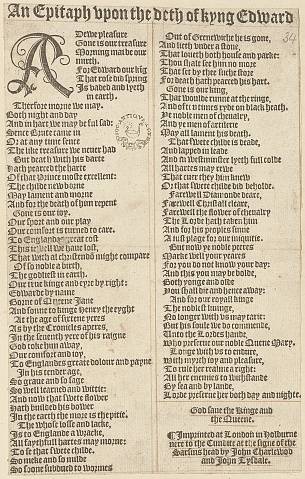 An Epitaph vpon the deth of kyng Edward
ADewe pleasure
Gone is our treasure
Morning maie be our
mirth.
For Edward our king
That rose did spring
Is vaded and lyeth
in earth.
Therfore morne we may.
Both night and day
And in hart we may be ful sad:
Sence Brute came in
Or at any time sence
The like treasure we neuer had
Our death with his darte
Hath pearced the harte
Of that Prince moste excellent:
The childe new borne
May lament and morne
And for the death of him repent
Gone is our ioy.
Our sport and our play
Our comfort is turned to care.
To Englandes great cost
This iewell we haue lost,
That with al christendõ might compare
Of so noble a birth,
The godliest in earth.
Our true kinge and eyre by right:
Edward by name
Gone of Quene Jane
And sonne to kinge henry the eyght
At the age of sixtene yeres
As by the Cronicles aperes,
In the seuenth yere of his raigne
God toke him away,
Our comfort and ioy,
To Englandes greate dolour and payne
In his tender age,
So graue and so sage
So well learned and wittie:
And now that swete flower
Hath builded his bower
In the earth the more is the pitie.
The whose losse and lacke,
Is to England a wracke,
All faythfull hartes may morne:
To se that swete childe.
So meke and so milde
So soone subdued to wormes
Out of Grenewiche he is gone,
And lieth vnder a stone,
That loueth both house and parke:
Thou shalt see him no more
That set by thee suche store
For death hath pearced his hart.
Gone is our king,
That woulde runne at the ringe,
And often times ryde on black heath.
Ye noble men of chevalry,
And ye men of artilerie
May all lament his death.
That swete childe is deade,
And lapped in leade
And in westminster lyeth full colde
All hartes may rewe
That euer they him knew
Or that swete childe did beholde.
Farewell Diamonde deare,
Farewell Christall cleare,
Farewell the flower of chevalry
The Lorde hath taken him
And for his peoples sinne
A iust plague for our iniquitie.
But now ye noble peeres
Marke well your yeares
For you do not know your day:
And this you may be bolde,
Both yonge and olde
You shall die and hence away:
And for our royall kinge
The noblest liuinge,
No longer with vs may tarie:
But his soule we do commende,
Unto the Lordes hande,
Who preserue our noble Quene Mary.
Longe with vs to endure,
With myrth ioy and pleasure,
To rule her realme a right:
All her enemies to vanquish
By sea and by lande,
Lorde preserue her both day and night.
God saue the Kinge and
the Quene.
¶ Imprinted at London in Holburne
nere to the Cunditte at the signe of the
Sarsins head by John Charlewod
and John Tysdale.
34